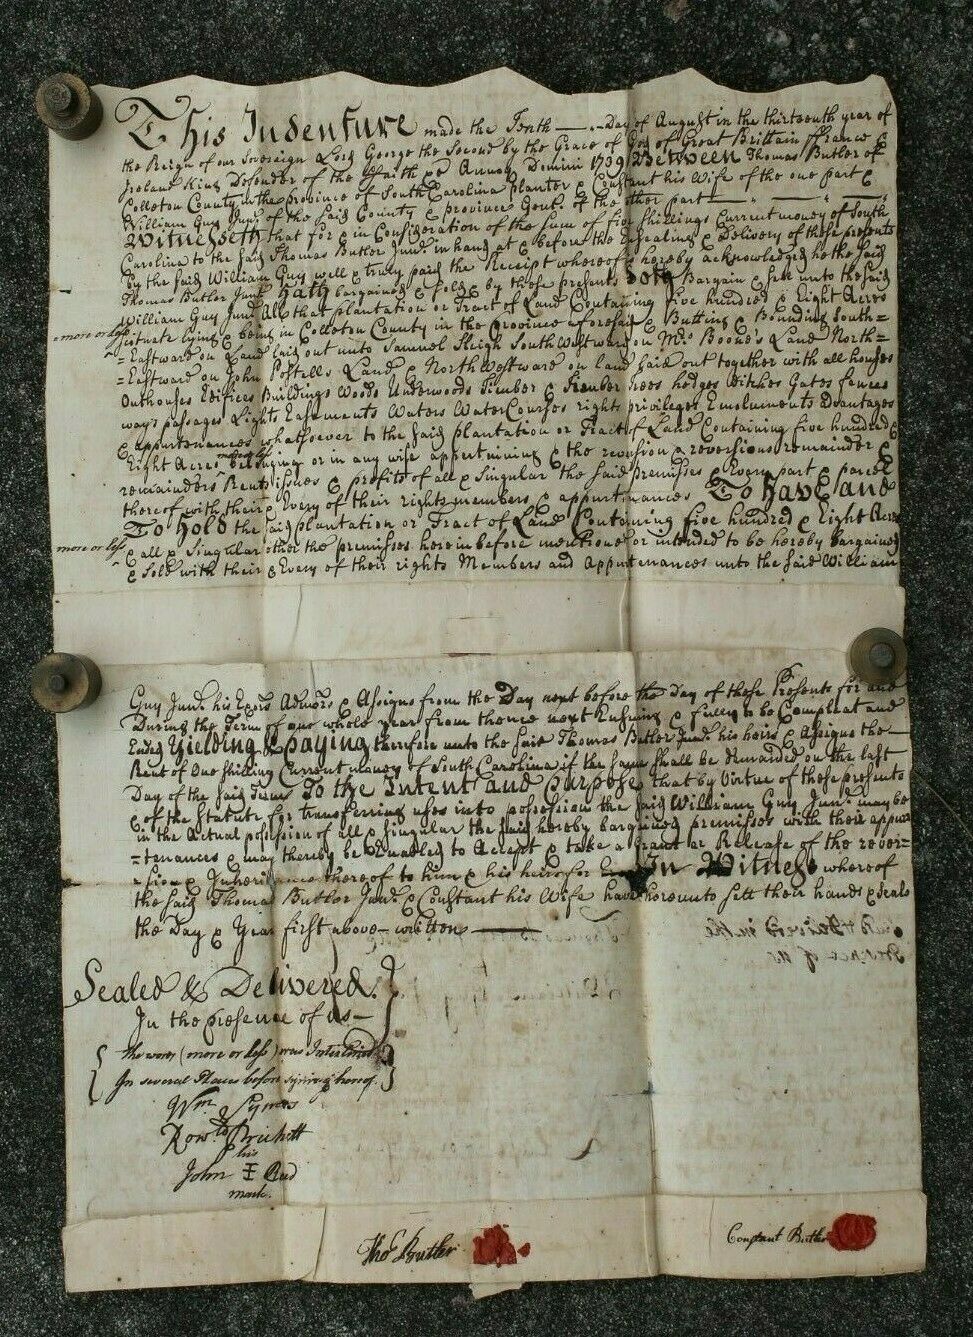 This Indenture made the Tenth — Day of August in the thirteenth year of
the Reign of our Sovereign Lord George the Second by the Grace of God of Great Brittain ffrance &
Ireland King Defender of the ffaith &c Annoq Domini 1739 Between Thomas Butler of
Colleton County in the province of South Carolina planter & Constant his Wife of the one part &
William Guy Junr. of the said County & province Gentn. of the other part —
Witnesseth that for & in Consideration of the sum of five shillings Current money of South
Carolina to the said Thomas Butler Junr. in hand at & before the Ensealing & Delivery of these presents
by the said William Guy well & truly paid the Receipt whereof is hereby acknowledged he the said
Thomas Butler Junr. Hath bargained & sold & by these presents Doth Bargain & sell unto the said
William Guy Junr. All that plantation or Tract of Land Containing five hundred & Eight Acres
more or less
scituate lying & being in Colleton County in the province aforesaid & Butting & Bounding South=
=Eastward on Land laid out unto Samuel Sleigh SouthWestward on Mrs. Boone's Land North=
=Eastward on John Postells Land & NorthWestward on land laid out together with all houses
Outhouses Edifices Buildings Woods Underwoods Timber & Timber trees hedges ditches Gates fences
ways passages Lights Easements Waters WaterCourses rights privileges Emoluments Advantages
& appurtenances whatsoever to the said plantation or Tract of Land Containing five hundred &
Eight Acres more or less belonging or in any wise appertaining & the reversion & reversions remainder &
remainders Rents issues & profits of all & Singular the said premisses & Every part & parcel
thereof with their & Every of their rights members & appurtenances To Have and
To Hold the said plantation or Tract of Land Containing five hundred & Eight Acres
more or less
& all & Singular other the premisses hereinbefore mentioned or intended to be hereby bargained
& Sold with their & Every of their rights Members and Appurtenances unto the said William
Guy Junr. his Exors Admors & Assigns from the Day next before the Day of these Presents for and
During the Term of one whole year from thence next Ensuing & fully to be Compleat and
Ended Yielding & paying therefore unto the said Thomas Butler Junr. his heirs & Assigns the —
Rent of One shilling Current money of South Carolina if the same shall be demanded on the last
Day of the said Term To the Intent and purpose that by Virtue of these presents
& of the Statute for transferring uses into possession the said William Guy Junr. may be
in the Actual possession of all & singular the said hereby bargained premisses with their appur=
=tenances & may thereby be Enabled to Accept & take a Grant or Release of the rever=
=sion & Inheritance thereof to him & his heirs for Ever In Witness whereof
the said Thomas Butler Junr. & Constant his Wife have hereunto sett their hands & Seals
the Day & Year first above written —
Sealed & Delivered
In the presence of us —
the word (more or less) was Interlined
In several Places before signing hereof.
Wm. Symes
Rowd. Prichett
his
John I Rud
mark.
Tho. Butler
Constant Butler